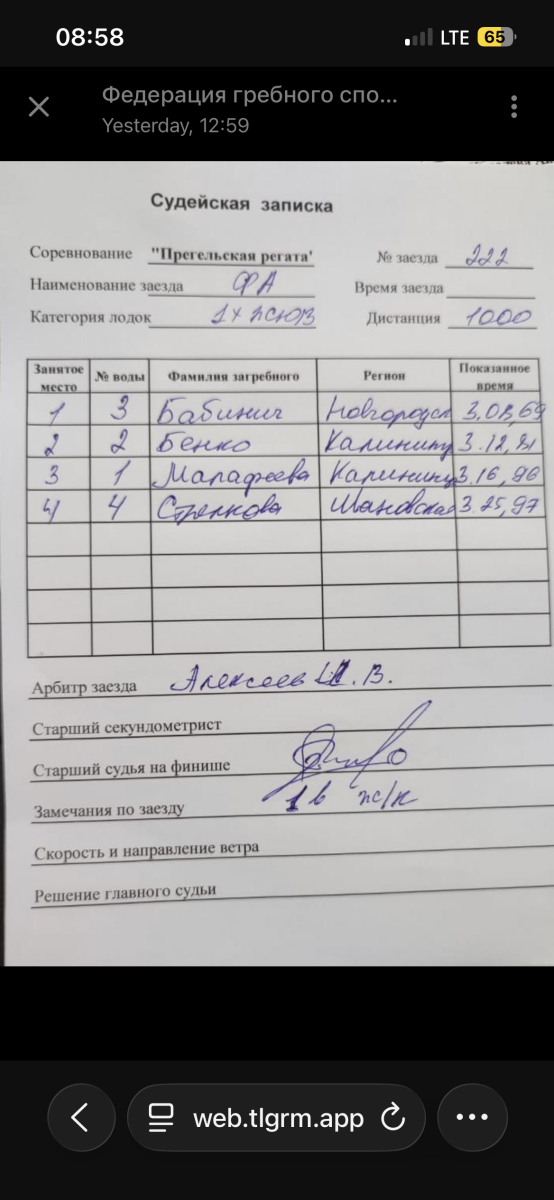 08:58 LTE 65
Федерация гребного спо...
Yesterday, 12:59
Судейская записка
Соревнование "Прегельская регата" № заезда 222
Наименование заезда ФА Время заезда
Категория лодок 1х Дистанция 1000
Занятое место № воды Фамилия загребного Регион Показанное время
1 3 Бабинич Новгородск
2 2 Бенко 3.12,
3 1 Малафеева 3.16,96
4 4 Стрелкова 3.25,97
Арбитр заезда Алексеев В.
Старший секундометрист
Старший судья на финише
Замечания по заезду 1 в ж/к
Скорость и направление ветра
Решение главного судьи
web.tlgrm.app